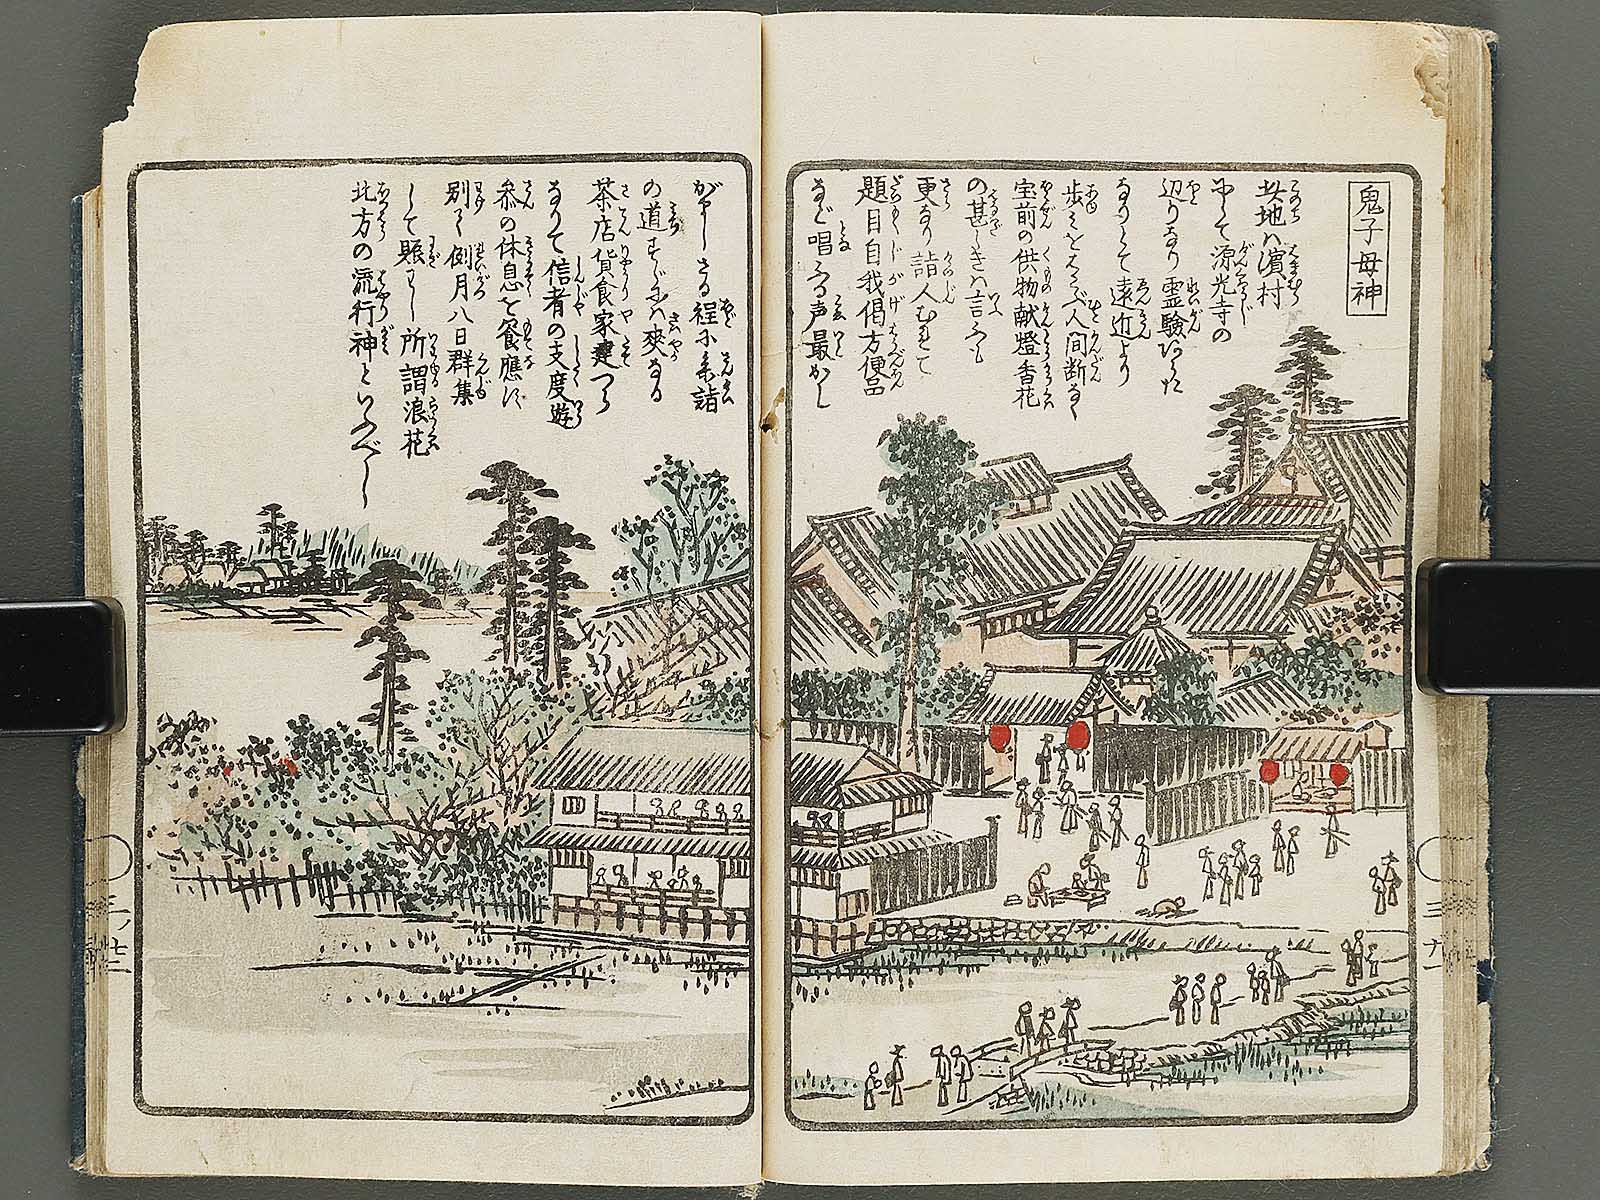 鬼子母神
此地ハ濱村
にして源光寺の
辺りなり霊験あらた
なりとて遠近より
歩ミをはこぶ人間断なく
宝前の供物献燈香花
の甚しきハ言ふも
更なり詣人むれて
題目自我偈方便品
など唱ふる声最かし
がまし さる程に参詣
の道すじにハ爽なる
茶店貨食家建つらなりて
信者の支度遊
参の休息を饗應す
別て例月八日群集
して賑はし所謂浪花
北方の流行神といふべし